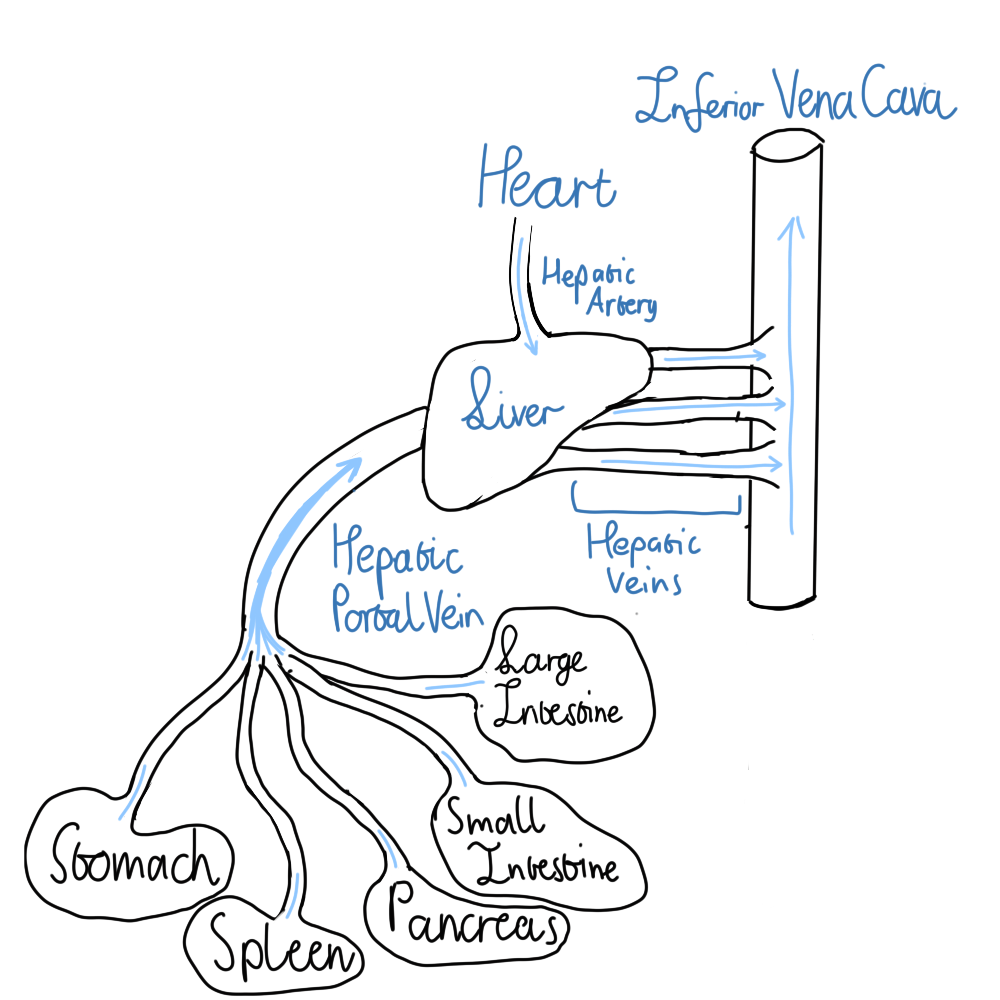 Inferior Vena Cava
Heart
Hepatic
Artery
Liver
Hepatic
Veins
Hepatic
Portal Vein
Large
Intestine
Small
Intestine
Stomach
Pancreas
Spleen